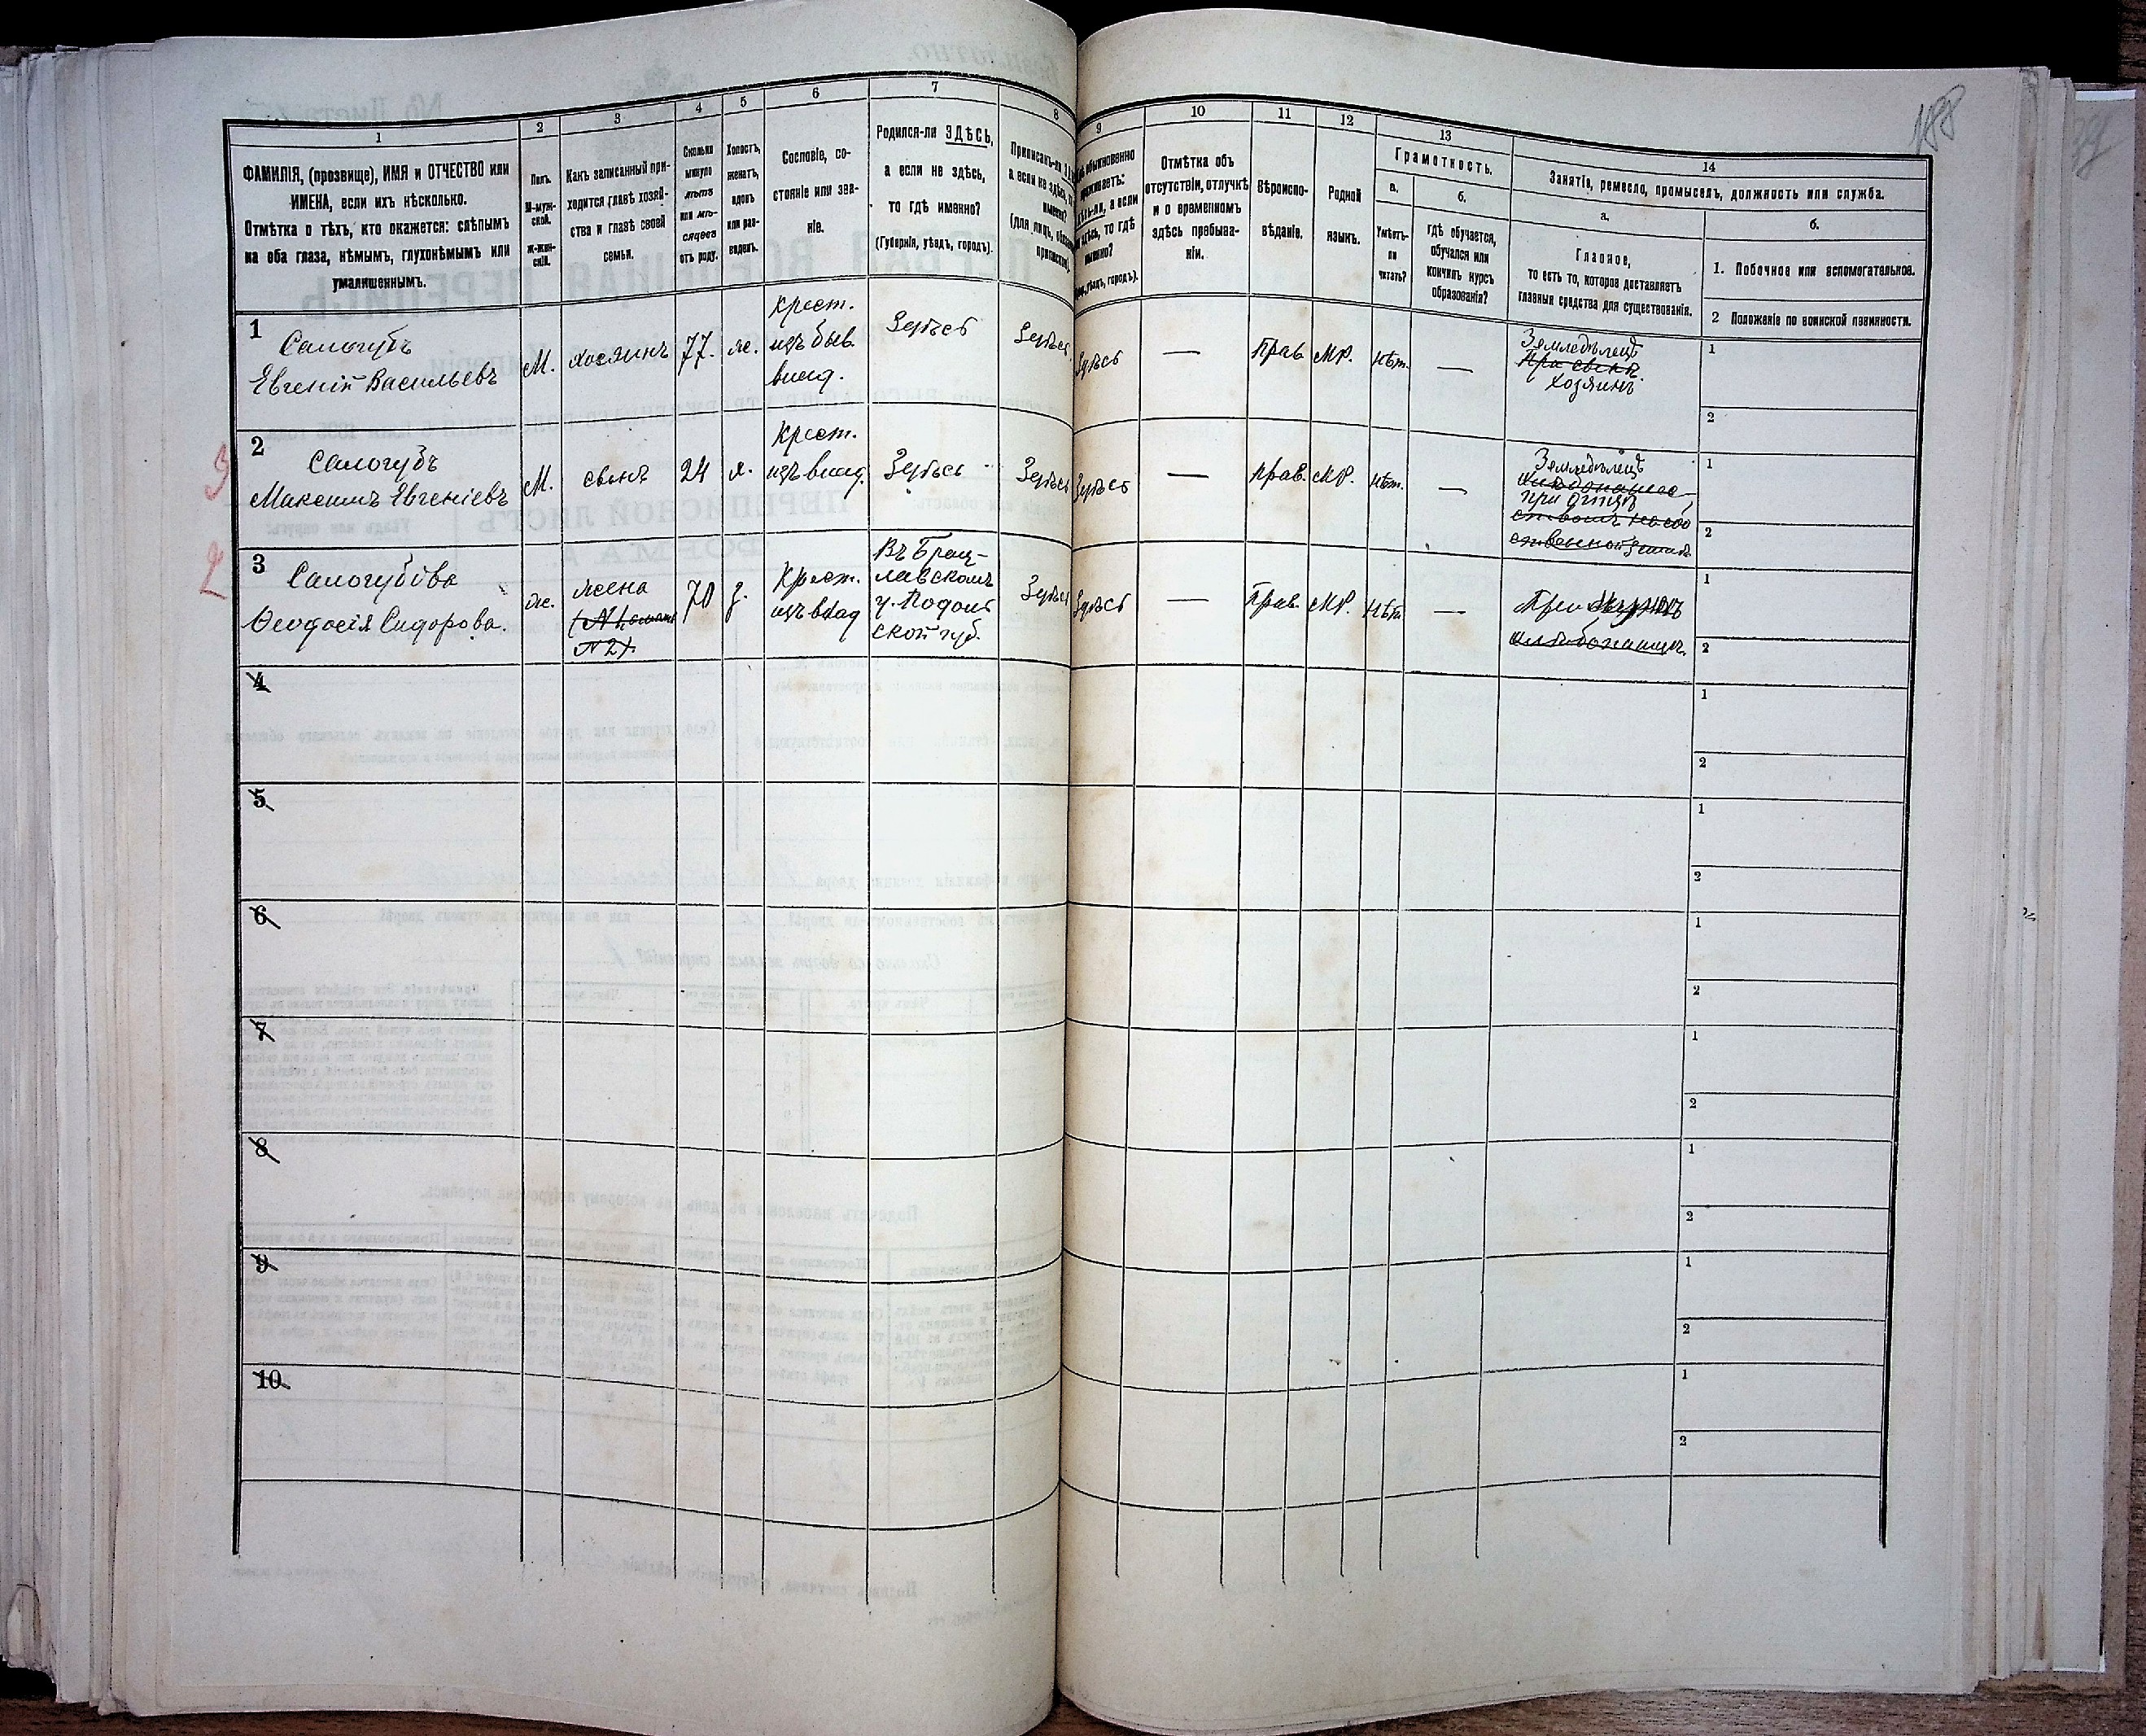 188
1
2
3
4
5
6
7
8
9
10
11
12
13
14
ФАМИЛІЯ, (прозвище), ИМЯ и ОТЧЕСТВО или
ИМЕНА, если ихъ нѣсколько.
Отмѣтка о тѣхъ, кто окажется: слѣпымъ
на оба глаза, нѣмымъ, глухонѣмымъ или
умалишеннымъ.
Полъ.
М-муж-
ской.
Ж-жен-
скій.
Какъ записанный при-
ходится главѣ хозяй-
ства и главѣ своей
семьи.
Сколько
минуло
лѣтъ
или мѣ-
сяцевъ
отъ роду.
Холостъ,
женатъ,
вдовъ
или раз-
веденъ.
Сословіе, со-
стояніе или зва-
ніе.
Родился-ли ЗДѢСЬ,
а если не здѣсь,
то гдѣ именно?
(Губернія, уѣздъ, городъ).
Приписанъ-ли
а если не здѣсь,
(для лицъ,
обыкновенно
а если
здѣсь, то гдѣ
городъ).
Отмѣтка объ
отсутствіи, отлучкѣ
и о временномъ
здѣсь пребыва-
ніи.
Вѣроиспо-
вѣданіе.
Родной
языкъ.
Грамотность.
а.
Умѣетъ-
ли
читать?
б.
гдѣ обучается,
обучался или
кончилъ курсъ
образованія?
Занятіе, ремесло, промыселъ, должность или служба.
а.
Главное,
то есть то, которое доставляетъ
главныя средства для существованія.
б.
1. Побочное или вспомогательное.
2 Положеніе по воинской повинности.
1
Самогубъ
Евгеній Васильевъ
М.
хозяинъ
77.
ж.
крест.
изъ быв.
влад.
Здѣсь
Здѣсь
Здѣсь
—
Прав
Мр.
нѣт.
—
Земледѣлецъ
При сынѣ
хозяинъ
1
2
3
2
Самогубъ
Максимъ Евгеніевъ
М.
сынъ
24
х.
Крест.
изъ влад.
Здѣсь
Здѣсь
Здѣсь
—
прав.
МР.
нѣт.
—
Земледѣлецъ
при отцѣ
1
2
2
3
Самогубова
Ѳеодосія Сидорова.
ж.
жена
N2).
70
з.
Крест.
изъ влад
Въ Брац-
лавскомъ
у. Подоль
ской губ.
Здѣсь
Здѣсь
—
Прав.
МР.
нѣт
—
При
1
2
4
1
2
5
1
2
6
1
2
7
1
2
8
1
2
9
1
2
10
1
2